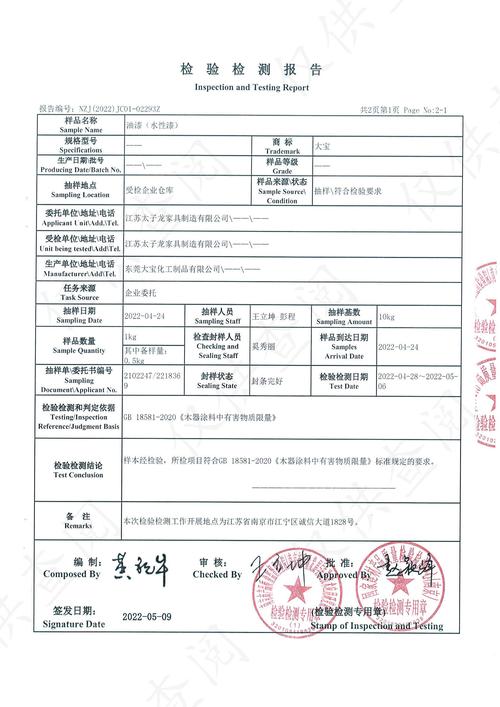 检验检测报告
Inspection and Testing Report
报告编号: NZJ(2022)JC01-02293Z 共2页第1页 Page No:2-1
样品名称 Sample Name 油漆（水性漆）
规格型号 Specifications —— 商 标 Trademark 大宝
生产日期\批号 Producing Date/Batch No. ——\—— 样品等级 Grade ——
抽样地点 Sampling Location 受检企业仓库 样品来源\状态 Sample Source\ Condition 抽样\符合检验要求
委托单位\地址\电话 Applicant Unit\Add.\Tel. 江苏太子龙家具制造有限公司\——\——
受检单位\地址\电话 Unit being tested\Add\Tel. 江苏太子龙家具制造有限公司\——\——
生产单位\地址\电话 Manufacturer\Add\Tel. 东莞大宝化工制品有限公司\——\——
任务来源 Task Source 企业委托
抽样日期 Sampling Date 2022-04-24 抽样人员 Sampling Staff 王立坤 彭程 抽样基数 Sampling Amount 10kg
样品数量 Sample Quantity 1kg 其中备样量: 0.5kg 检查封样人员 Checking and Sealing Staff 奚秀丽 样品到达日期 Samples Arrival Date 2022-04-24
抽样单\委托书编号 Sampling Document\Applicant No. 2102247/2218369 封样状态 Sealing State 封条完好 检验检测日期 Test Date 2022-04-28~2022-05-06
检验检测和判定依据 Testing/Inspection Reference/Judgment Basis GB 18581-2020《木器涂料中有害物质限量》
检验检测结论 Test Conclusion 样本经检验，所检项目符合GB 18581-2020《木器涂料中有害物质限量》标准规定的要求。
备 注 Remarks 本次检验检测工作开展地点为江苏省南京市江宁区诚信大道1828号。
编 制: Composed By 审 核: Checked By 批 准: Approved By
签发日期: Signature Date 2022-05-09
(检验检测专用章)
Stamp of Inspection and Testing
检验检测专用章
(1)
检验检测专用章
仅供查阅